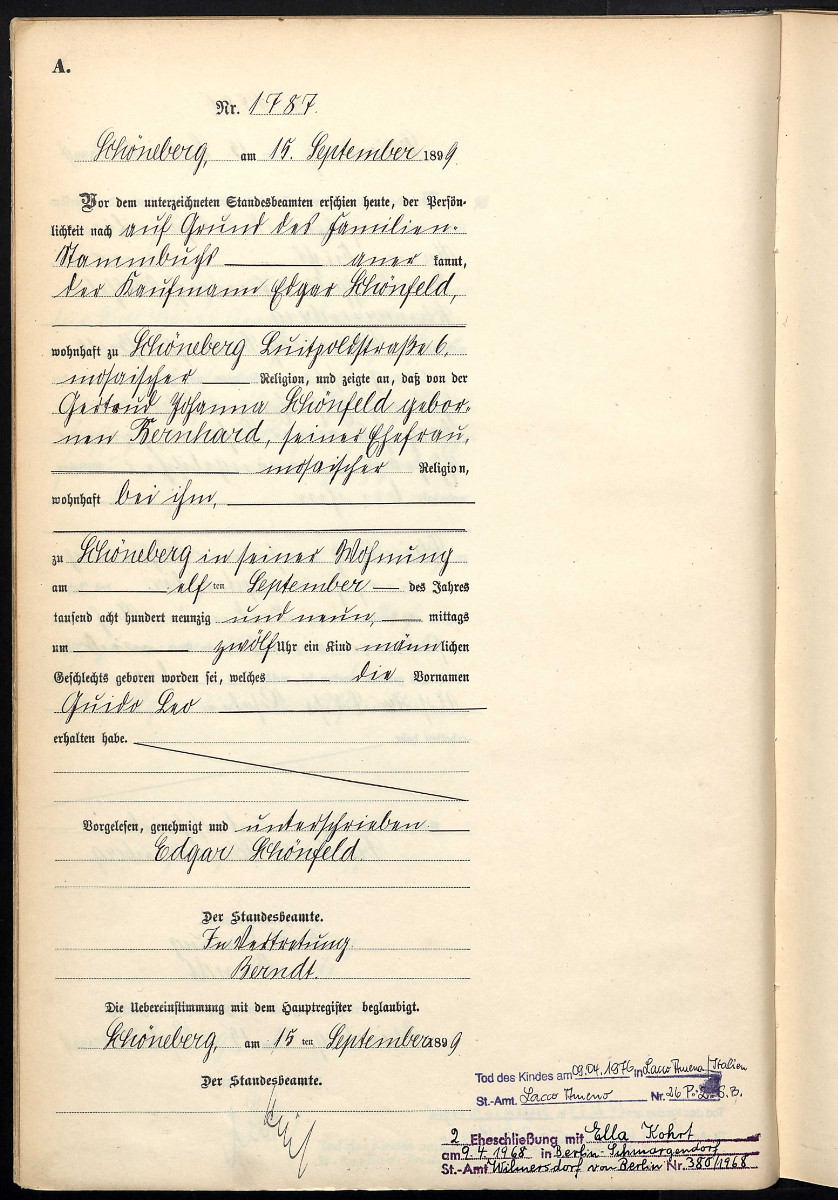 A.
Nr. 1787.
Schöneberg, am 15. September 1899.
Vor dem unterzeichneten Standesbeamten erschien heute, der Persön-
lichkeit nach auf Grund des Familien-
Stammbuchs aner kannt,
der Kaufmann Edgar Schönfeld,
wohnhaft zu Schöneberg Luitpoldstraße 6,
mosaischer Religion, und zeigte an, daß von der
Gertrud Johanna Schönfeld gebor-
nen Bernhard, seiner Ehefrau,
mosaischer Religion,
wohnhaft bei ihm,
zu Schöneberg in seiner Wohnung
am elf ten September des Jahres
tausend acht hundert neunzig und neun, mittags
um zwölf Uhr ein Kind männlichen
Geschlechts geboren worden sei, welches die Vornamen
Guido Leo
erhalten habe.
Vorgelesen, genehmigt und unterschrieben.
Edgar Schönfeld.
Der Standesbeamte.
In Vertretung.
Berndt.
Die Uebereinstimmung mit dem Hauptregister beglaubigt.
Schöneberg, am 15 ten September 1899
Der Standesbeamte.
Tod des Kindes am 09.04.1976 in Lacco Ameno/Italien
St.-Amt. Lacco Ameno Nr. 26 P. S.B.
2 Eheschließung mit Ella Kohrt
am 9.4.1968 in Berlin-Schmargendorf
St.-Amt Wilmersdorf von Berlin Nr. 380/1968